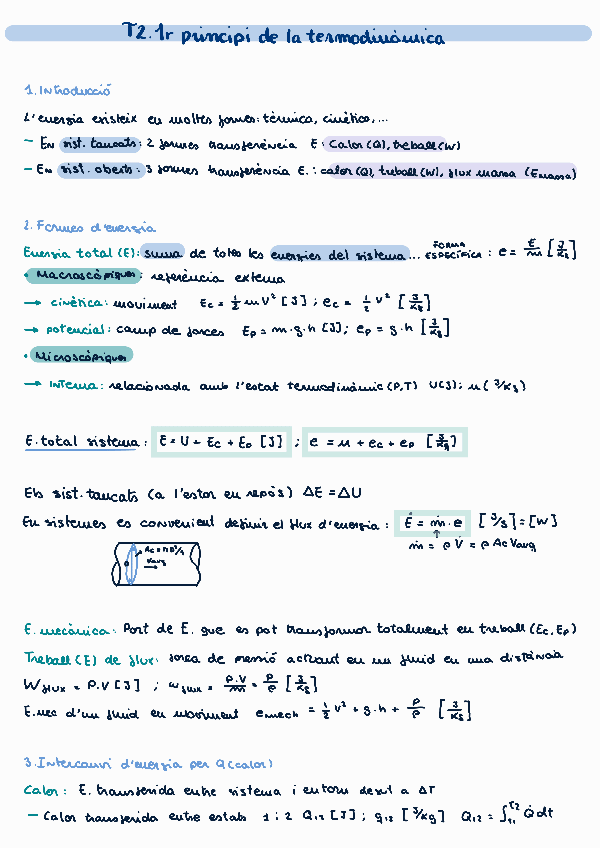 T2. 1r principi de la termodinàmica
1. Introducció
L'energia existeix en moltes formes: tèrmica, cinètica, ...
- En sist. tancats: 2 formes transferència E: Calor (Q), treball (W)
- En sist. oberts: 3 formes transferència E.: calor (Q), treball (W), flux massa (Emassa)
2. Formes d'energia
Energia total (E): suma de totes les energies del sistema... FORMA ESPECÍFICA: e = E/m [J/Kg]
• Macroscòpiques: referència externa
→ cinètica: moviment Ec = 1/2 m V² [J]; ec = 1/2 V² [J/Kg]
→ potencial: camp de forces Ep = m·g·h [J]; ep = g·h [J/Kg]
• Microscòpiques
→ Interna: relacionada amb l'estat termodinàmic (P,T) U(J); u (J/Kg)
E. total sistema: E = U + Ec + Ep [J] ; e = u + ec + ep [J/Kg]
Els sist. tancats (a l'estar en repòs) ΔE = ΔU
En sistemes es convenient definir el flux d'energia: Ė = ṁ·e [J/s] = [W]
ṁ = ρ V̇ = ρ Ac Vavg
Vavg
E. mecànica: Part de E. que es pot transformar totalment en treball (Ec, Ep)
Treball (E) de flux: força de pressió actuant en un fluid en una distància
Wflux = P.V [J] ; wflux = P.V/m = P/ρ [J/Kg]
E. mec d'un fluid en moviment emech = 1/2 V² + g·h + P/ρ [J/Kg]
3. Intercanvi d'energia per Q (calor)
Calor: E. transferida entre sistema i entorn degut a ΔT
- Calor transferida entre estats 1 i 2 Q12 [J]; q12 [J/Kg] Q12 = ∫ Q̇ dt